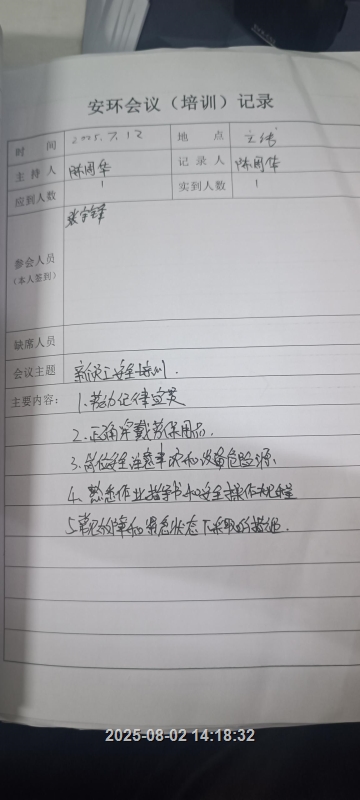 安环会议（培训）记录
时 间 2025.7.12 地 点
主持人 陈国华 记录人 陈国华
应到人数 1 实到人数 1
参会人员
（本人签到）
缺席人员
会议主题 新员工安全培训.
主要内容: 1.劳动纪律宣贯
2.正确穿戴劳保用品.
3.岗位安全注意事项和设备危险源.
4.熟悉作业指导书和安全操作规程
5.常见故障和紧急状态下采取的措施.
2025-08-02 14:18:32